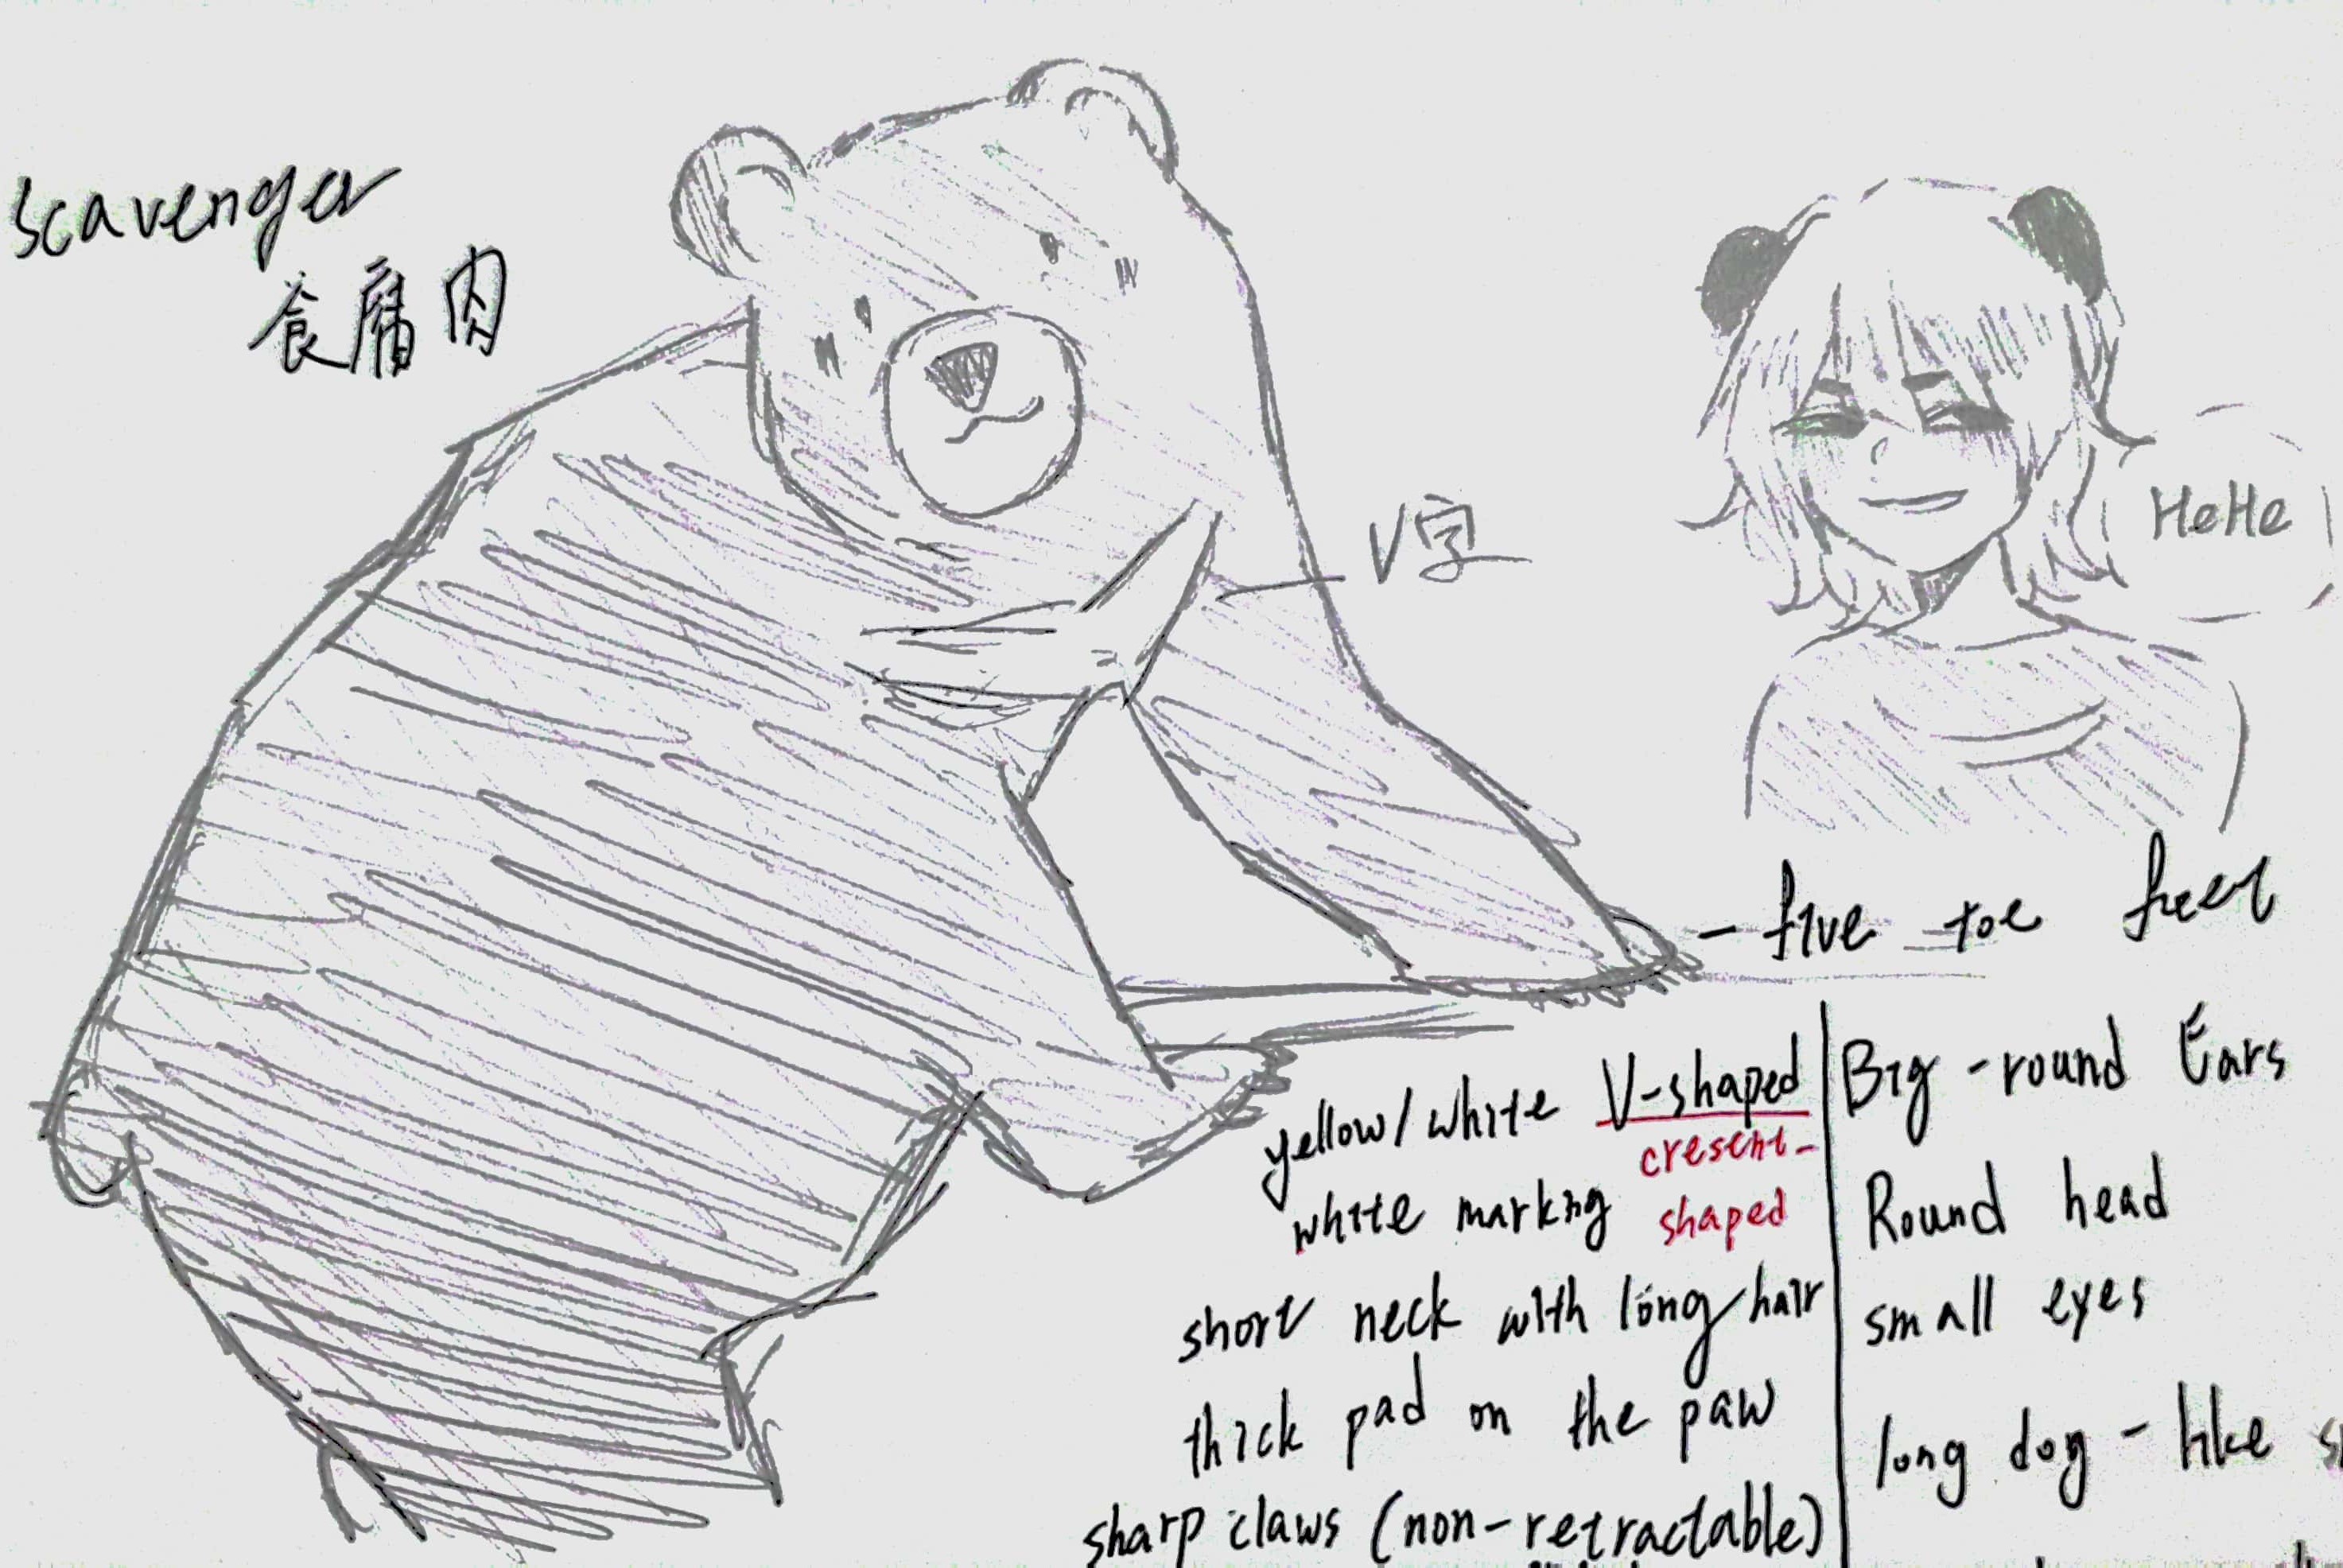 scavenger
食腐肉
V字
HeHe
- five toe feet
yellow/white V-shaped
cresent-
white marking shaped
short neck with long hair
thick pad on the paw
sharp claws (non-retractable)
Big-round Ears
Round head
small eyes
long dog-like